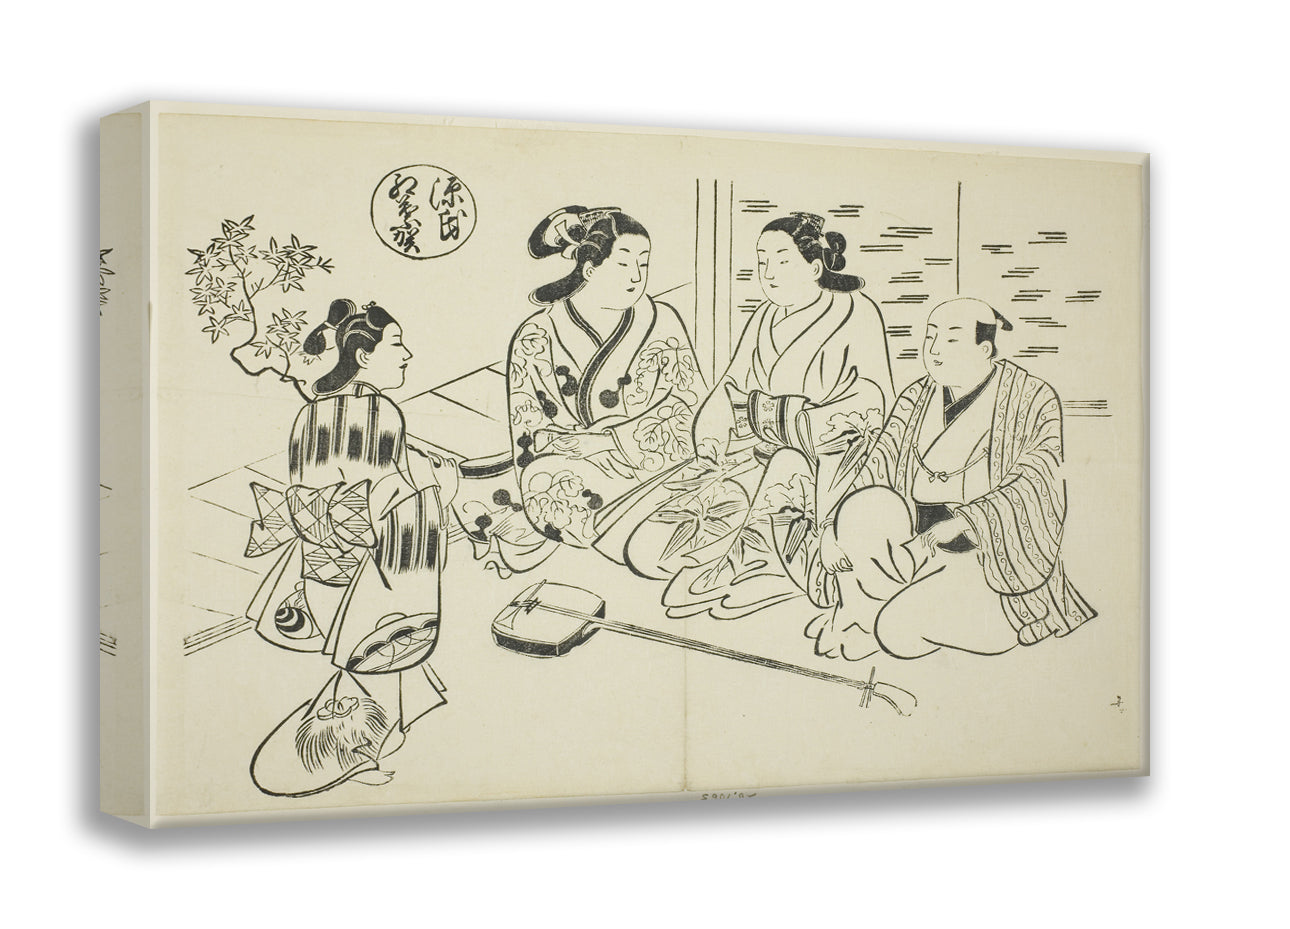 源氏
紅葉賀